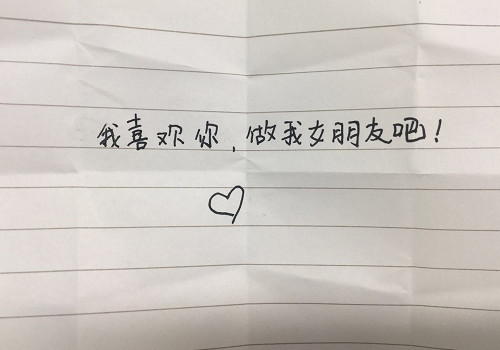 我喜欢你,做我女朋友吧!